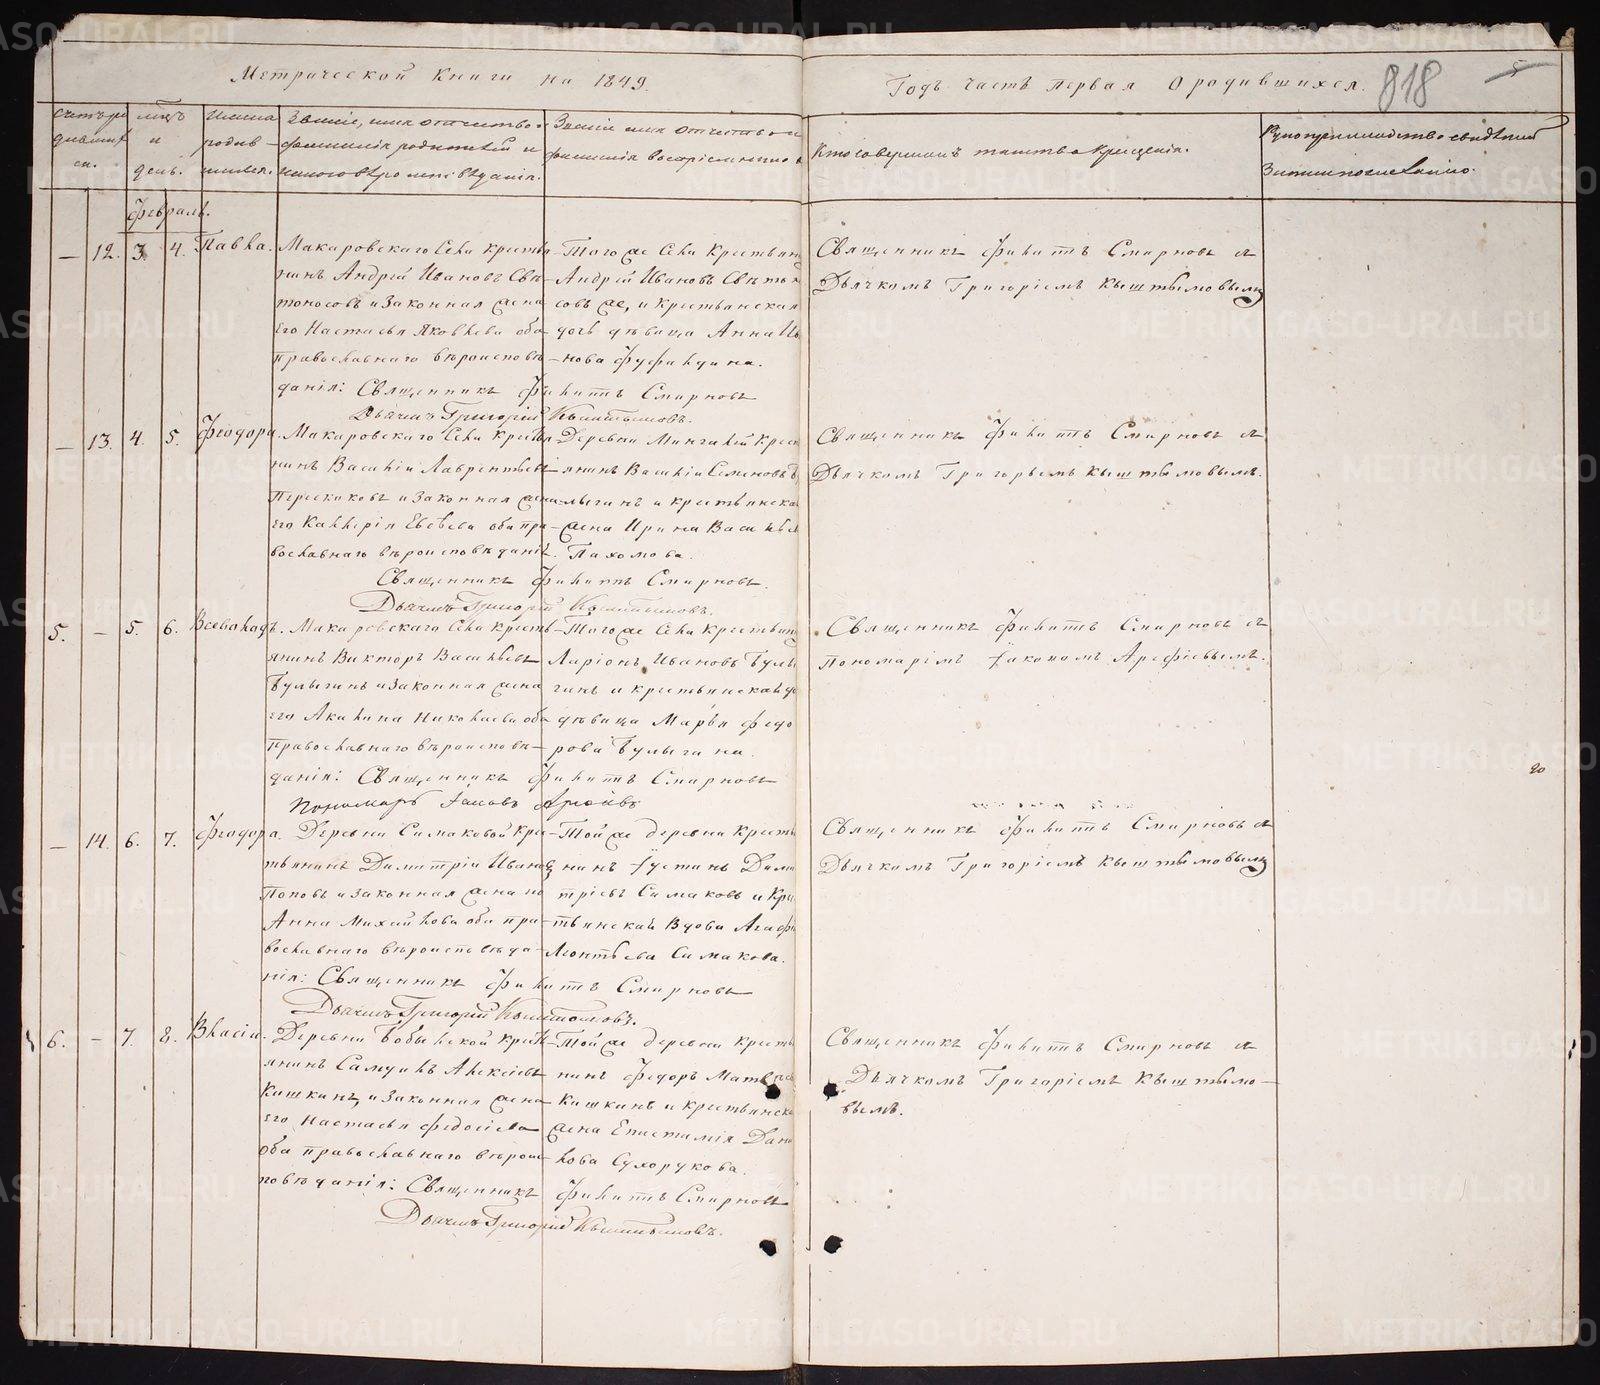 Метрической Книги на 1849.
Годъ Часть первая О родившихся.
818
5
Счетъ ро
дивших
ся.
мѣсѧцъ
и
день.
Имена
родив-
шихся.
Званіе, имя отчество и
фамилія родителей и
какого вѣроисповѣданія.
Званіе имя отчество и
фамилія воспріемниковъ
Кто совершалъ таинство Крещенія.
Рукоприкладство свидѣтелей
записи по желанію.
Февраль.
— 12. 3. 4. Павла.
Макаровскаго Села крестья-
нинъ Андрей Ивановъ Свѣ-
тоносовъ и Законная жена
его Настасья Яковлева оба
православнаго вѣроисповѣ-
данія: Священникъ Филиппъ Смирновъ
Дьячекъ Григорій Кыштымовъ.
Того же Села Крестьянинъ
Андрей Ивановъ Свѣтоно
совъ же, и Крестьянская
дочь дѣвица Анна Ива
нова Фуфалдина.
Священникъ Филиппъ Смирновъ съ
Дьячкомъ Григоріемъ Кыштымовымъ
— 13. 4. 5. Феодора.
Макаровскаго Села Крестья
нинъ Василій Лаврентьевъ
Перескоковъ и Законная жена
его Каллерія Евсѣева оба пра-
вославнаго вѣроисповѣданія.
Священникъ Филиппъ Смирновъ.
Дьячекъ Григорій Кыштымовъ.
Деревни Мингалей Крест
янинъ Василій Семеновъ Бу
лыгинъ и крестьянская
жена Ирина Васильева
Пахомова.
Священникъ Филиппъ Смирновъ съ
Дьячкомъ Григорьемъ Кыштымовымъ.
5. — 5. 6. Всеволодъ.
Макаровскаго Села Кресть-
янинъ Викторъ Васильевъ
Булыгинъ и Законная жена
его Акилина Николаева оба
православнаго вѣроисповѣ-
данія: Священникъ Филиппъ Смирновъ
Пономарь Іаковъ Арефьевъ
Того же Села Крестьянинъ
Ларіонъ Ивановъ Булы
гинъ и крестьянская до
дѣвица Марья Федо
рова Булыгина.
Священникъ Филиппъ Смирновъ съ
пономаремъ Іаковомъ Арефіевымъ.
— 14. 6. 7. Феодора.
Деревни Симаковой Крес-
тьянинъ Димитрій Ивановъ
Поповъ и Законная жена его
Анна Михайлова оба пра-
вославнаго вѣроисповѣда-
нія: Священникъ Филиппъ Смирновъ
Дьячекъ Григорій Кыштымовъ.
Той же деревни Кресть
нинъ Іустинъ Дими
тріевъ Симаковъ и Крес
тьянская Вдова Агафья
Леонтьева Симакова.
Священникъ Филиппъ Смирновъ съ
Дьячкомъ Григоріемъ Кыштымовымъ
6. — 7. 8. Власія.
Деревни Бобыльской Кресть
янинъ Самуилъ Алексѣевъ
Кашкинъ, и Законная жена
его Настасья Федосѣева
оба православнаго вѣроис-
повѣданія: Священникъ Филиппъ Смирновъ
Дьячекъ Григорій Кыштымовъ.
Той же деревни Кресть
нинъ Федоръ Матвѣевъ
Кашкинъ и крестьянская
жена Епистимія Дани
лова Сухорукова.
Священникъ Филиппъ Смирновъ съ
Дьячкомъ Григоріемъ Кыштымо-
вымъ.
METRIKI.GASO-URAL.RU